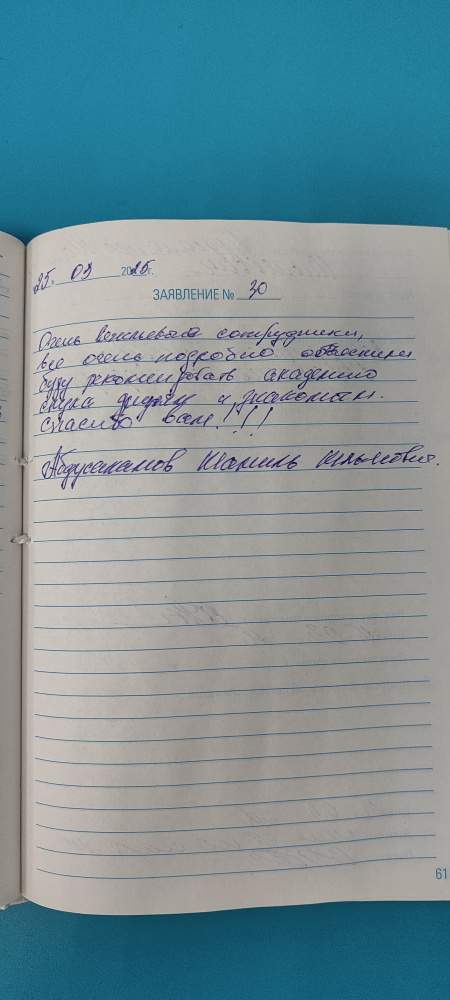 25. 03 2025г.
ЗАЯВЛЕНИЕ № 30
Очень вежливый сотрудники,
все очень подробно объяснили
буду рекомендовать академию
слуха друзьям и знакомым.
Спасибо вам!!!
Абдусаламов Шамиль
61